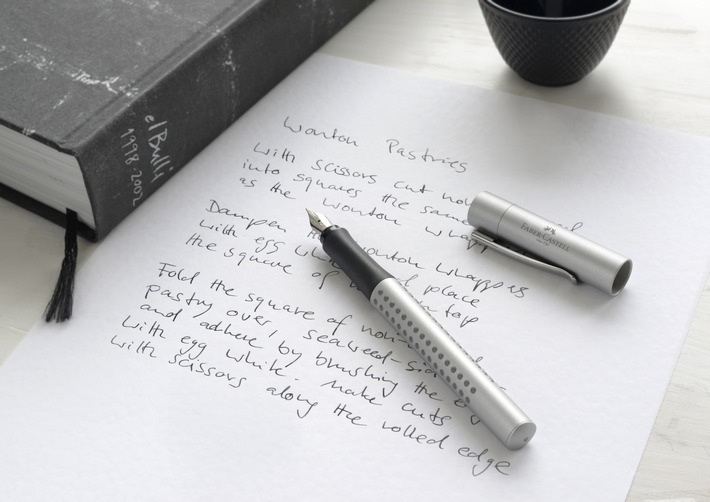 elBulli
1998-2002
Wonton Pastries
With scissors cut
into squares the same
as the wonton
Dampen the wonton wrappers
with egg place
the square of top
Fold the square of
pastry over, seaweed-side
and adhere by brushing the
with egg white. Make cuts
with scissors along the rolled edge
FABER-CASTELL